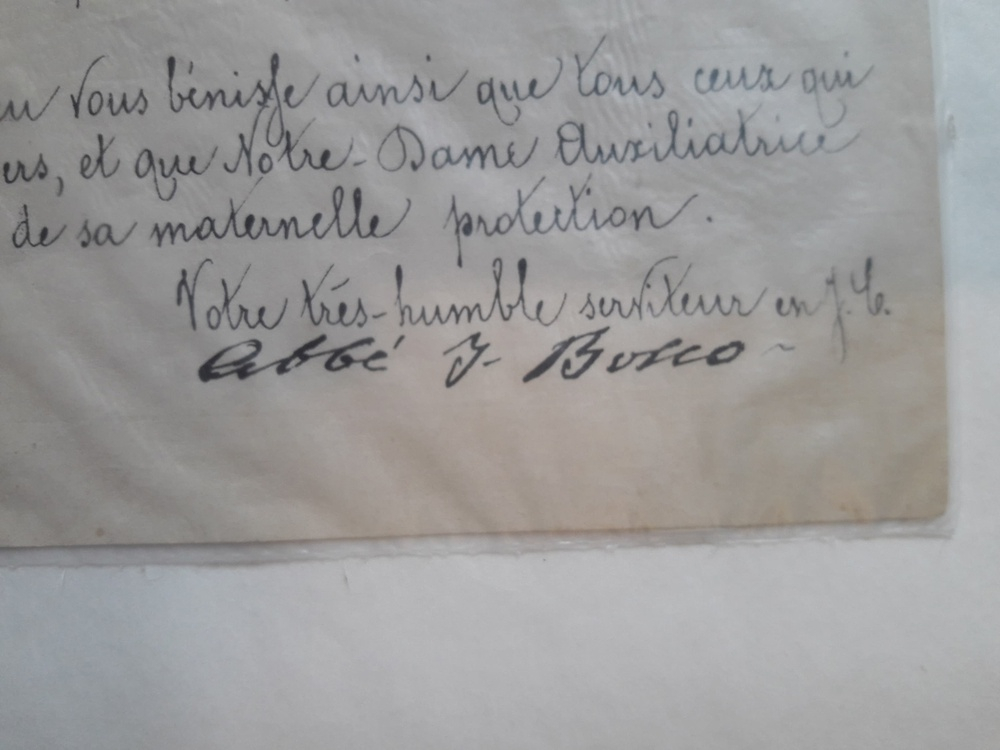 vous bénisse ainsi que tous ceux qui
et que Notre-Dame Auxiliatrice
de sa maternelle protection.
Votre très-humble serviteur en J. C.
Abbé J. Bosco